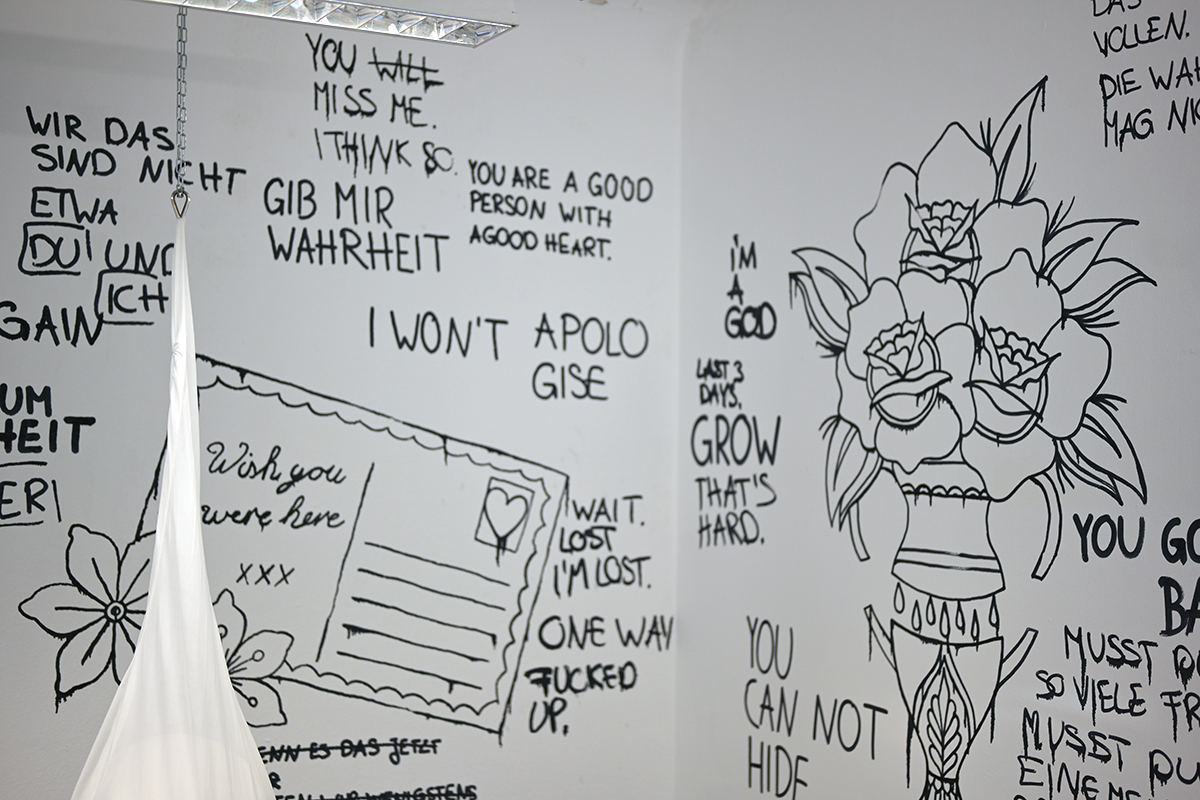 YOU WILL
MISS ME.
I THINK SO.
WIR DAS
SIND NICHT
ETWA
DU UND
ICH
GAIN
UM
HEIT
ER
GIB MIR
WAHRHEIT
YOU ARE A GOOD
PERSON WITH
A GOOD HEART.
I WON'T APOLO
GISE
Wish you
were here
xxx
WAIT.
LOST
I'M LOST.
ONE WAY
FUCKED
UP.
ENN ES DAS JETZT
WENIGSTENS
I'M
A
GOD
LAST 3
DAYS.
GROW
THAT'S
HARD.
YOU
CAN NOT
HIDE
DAS
VOLLEN.
DIE WAH
MAG NIC
YOU GO
BA
MUSST DU
SO VIELE FR
MUSST DU
EINE ME